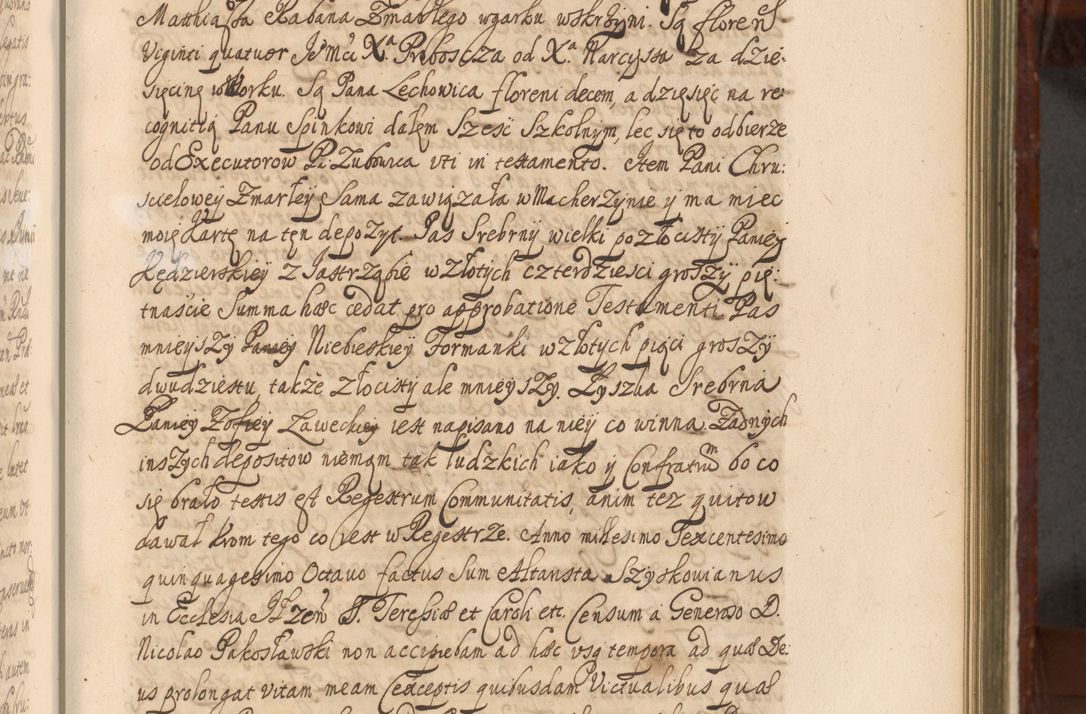 Matthiasza Rabana Zmarłego wgarku wskrzyni. Są floreni
Viginti quatuor Je Mci Xa. Proboscza od Xa. Narcyssa za dzie-
sięcinę w Worku. Są Pana Lechowica floreni decem, a dzięsięc na re-
cognitią Panu Spinkowi dałem Szesc Szkolnym, lec się to odbierze
od Executorow P. Zubowica vti in testamento. Item Pani Chru:
scielowey Zmarłey Sama zawiązała w Macherzynie y ma miec
moię Kartę na tęn depozyt. Pas Srebrny wielki pozłocisty Panięy
Kędzierskiey z Jastrząbie w złotych czterdziesci groszy pię-
tnaście Summa hæc cedat pro approbatione Testamenti. Pas
mnieyszy Paniey Niebieskiey Formanki w złotych pięci groszy
dwudziestu, także złocisty ale mnieyszy. Łyszka Srebrna
Paniey Zofiey Zaweckiey iest napisano na niey co winna. Żadnych
inszych depositow niemąm tak ludzkich iako y Confratrum bo co
się brało testis est Regestrum Communitatis, anim tez quitow
dawał krom tego co iest w Regestrze. Anno millesimo Texcentesimo
quinquagesimo Octavo factus Sum Altarista Szyskovianus
in Ecclesia S. Teresiæ et Caroli etc. Censum a Generoso D.
Nicolao Pakosławski non accipiebam ad hæc vsq tempora ad quæ De-
us prolongat vitam meam (exceptis quibusdam Victualibus quæ